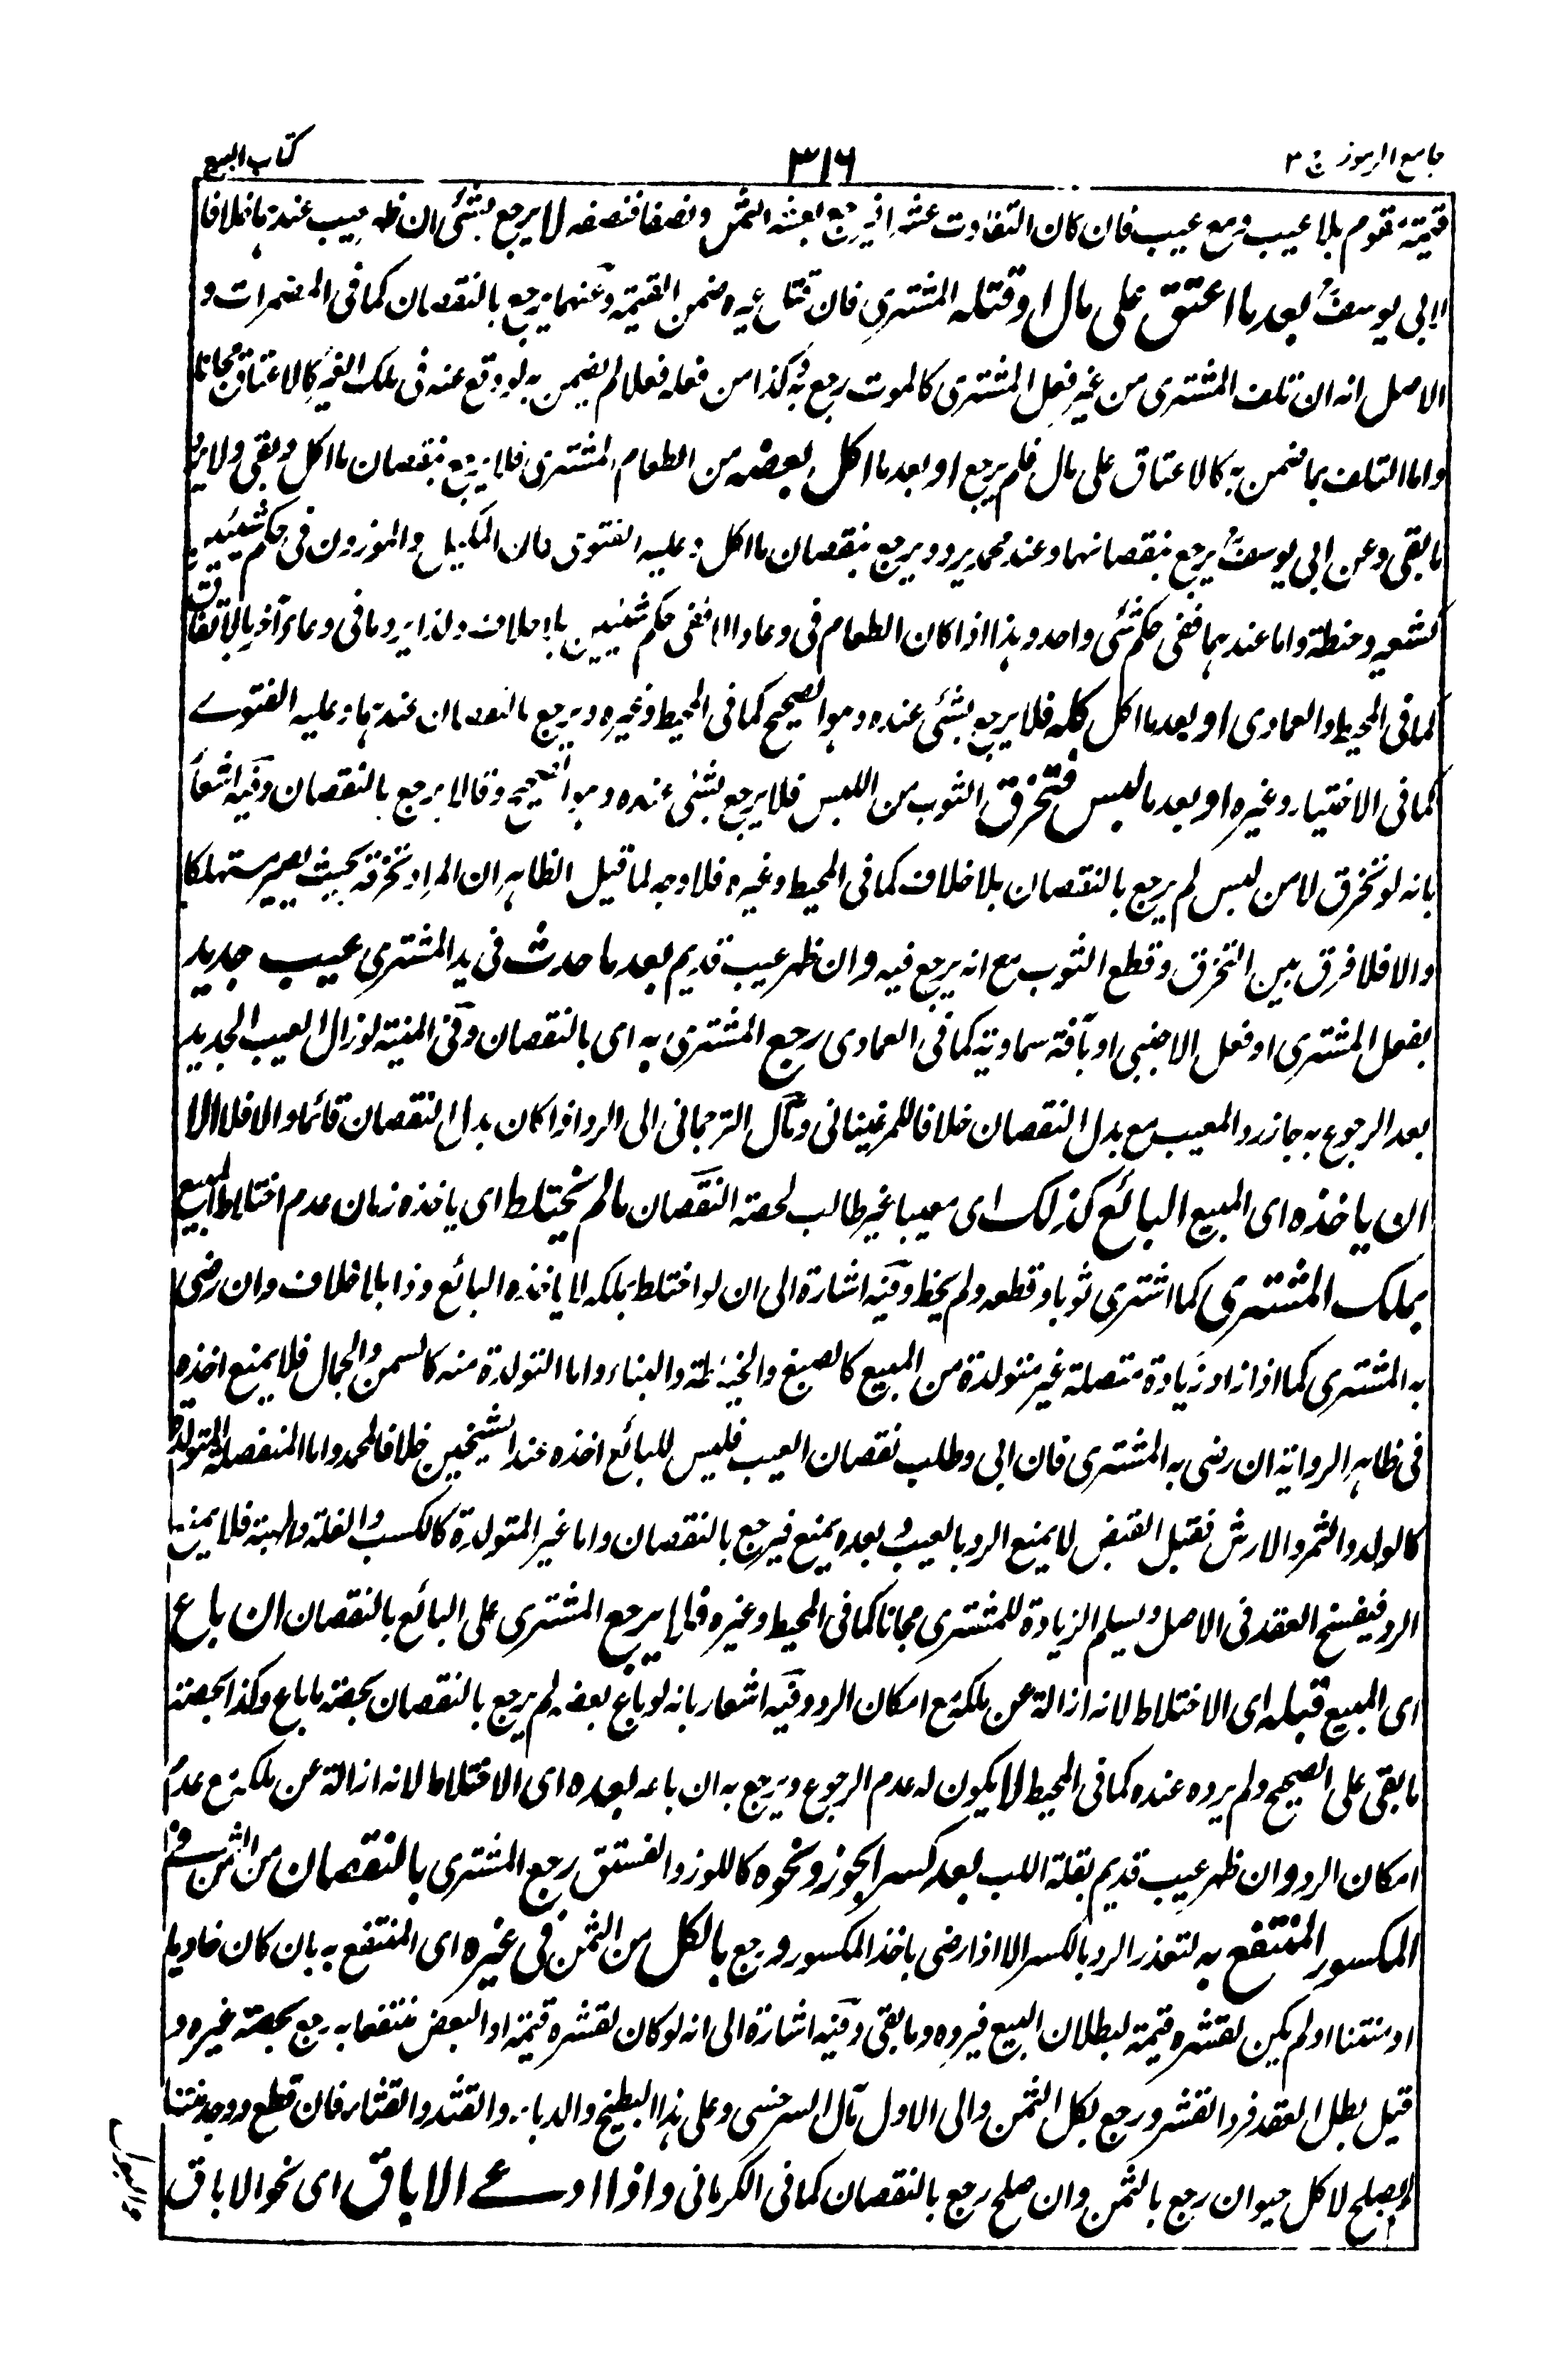 جامع الرموز ج ٣
٣١٦
كتاب البيع
قيمته تقوم بلا عيب ومع عيب فان كان التفاوت عشرا رجع بعشر الثمن ونصفا فنصفه لا يرجع بشئ ان ظهر عيب عندهما خلافا
لابى يوسف بعد ما اعتق على مال او قتله المشترى فان قتل غيره ضمن القيمة وعنهما يرجع بالنقصان كما فى المضمرات و
الاصل انه ان تلف المشترى من غير فعل المشترى كالموت رجع به وكذا من فعله فعلا لم يضمن به لو وقع عنه فى ملك الغير كالاعتاق مجانا
واما التلف بما ضمن به كالاعتاق على مال فلم يرجع او بعد ما اكل بعضه من الطعام المشترى فلا يرجع بنقصان ما اكل وبقى ولا يرد
ما بقى وعن ابى يوسف يرجع بنقصانهما وعند محمد يرد ويرجع بنقصان ما اكل وعليه الفتوى فان المكيل والموزون فى حكم شيئين
كشعير وحنطة واما عندهما ففى حكم شئ واحد وهذا اذا كان الطعام فى وعاء والا ففى حكم شيئين بلا خلاف ولذا يرد ما فى وعاء آخر بالاتفاق
كما فى المحيط والعمادى او بعد ما اكل كله فلا يرجع بشئ عنده وهو الصحيح كما فى المحيط وغيره ويرجع بالنقصان عندهما وعليه الفتوے
كما فى الاختيار وغيره او بعد ما لبس فتخرق الثوب من اللبس فلا يرجع بشئ عنده وهو الصحيح وقالا يرجع بالنقصان وفيه اشعار
بانه لو تخرق لا من لبس لم يرجع بالنقصان بلا خلاف كما فى المحيط وغيره فلا وجه لما قيل الظاهر ان المراد تخرقه بحيث يصير مستهلكا
والا فلا فرق بين التخرق وقطع الثوب مع انه يرجع فيه وان ظهر عيب قديم بعد ما حدث فى يد المشترى عيب جديد
بفعل المشترى او فعل الاجنبى او بآفة سماوية كما فى العمادى رجع المشترى به اى بالنقصان وفى المنية لو زال العيب الجديد
بعد الرجوع به جاز رد المعيب مع بدل النقصان خلافا للمرغينانى ومال الترجمانى الى الرد اذا كان بدل النقصان قائما والا فلا الا
ان ياخذه اى المبيع البائع كذلك اى معيبا غير طالب لحصة النقصان ما لم يختلط اى ياخذه زمان عدم اختلاط المبيع
بملك المشترى كما اشترى ثوبا وقطعه ولم يخط وفيه اشارة الى ان لو اختلط بملكه لا ياخذه البائع وذا بلا خلاف وان رضى
به المشترى كما اذا زاد زيادة متصلة غير متولدة من المبيع كالصبغ والخياطة والبناء واما المتولدة منه كالسمن والجمال فلا يمنع اخذه
فى ظاهر الرواية ان رضى به المشترى فان ابى وطلب نقصان العيب فليس للبائع اخذه عند الشيخين خلافا لمحمد واما المنفصلة المتولدة
كالولد والثمر والارش فقبل القبض لا يمنع الرد بالعيب وبعده يمنع فيرجع بالنقصان واما غير المتولدة كالكسب والغلة والهبة فلا يمنع
الرد فيفسخ العقد فى الاصل ويسلم الزيادة للمشترى مجانا كما فى المحيط وغيره فلا يرجع المشترى على البائع بالنقصان ان باع
اى المبيع قبله اى الاختلاط لانه ازالة عن ملكه مع امكان الرد وفيه اشعار بانه لو باع بعضه لم يرجع بالنقصان بحصة ما باع وكذا بحصة
ما بقى على الصحيح ولم يرده عنده كما فى المحيط لا يكون له عدم الرجوع ويرجع به ان باعه بعده اى الاختلاط لانه ازالة عن ملكه مع عدم
امكان الرد وان ظهر عيب قديم بقلة اللب بعد كسر الجوز ونحوه كاللوز والفستق رجع المشترى بالنقصان من الثمن فے
المكسور المنتفع به لتعذر الرد بالكسر الا اذا رضى باخذ المكسور ورجع بالكل من الثمن فى غيره اى المنتفع به بان كان خاويا
او منتنا او لم يكن لقشره قيمة لبطلان البيع فيرده وما بقى وفيه اشارة الى انه لو كان لقشره قيمة او البعض منتفعا به رجع بحصة غيره و
قيل بطل العقد فرد القشر ورجع بكل الثمن والى الاول مال السرخسى وعلى هذا البطيخ والدباء والقثد والقثاء فان قطع ووجد منتنا
لم يصلح لاكل حيوان رجع بالثمن وان صلح رجع بالنقصان كما فى الكرمانى واذا ادعے الاباق اى نحو الاباق
والبول